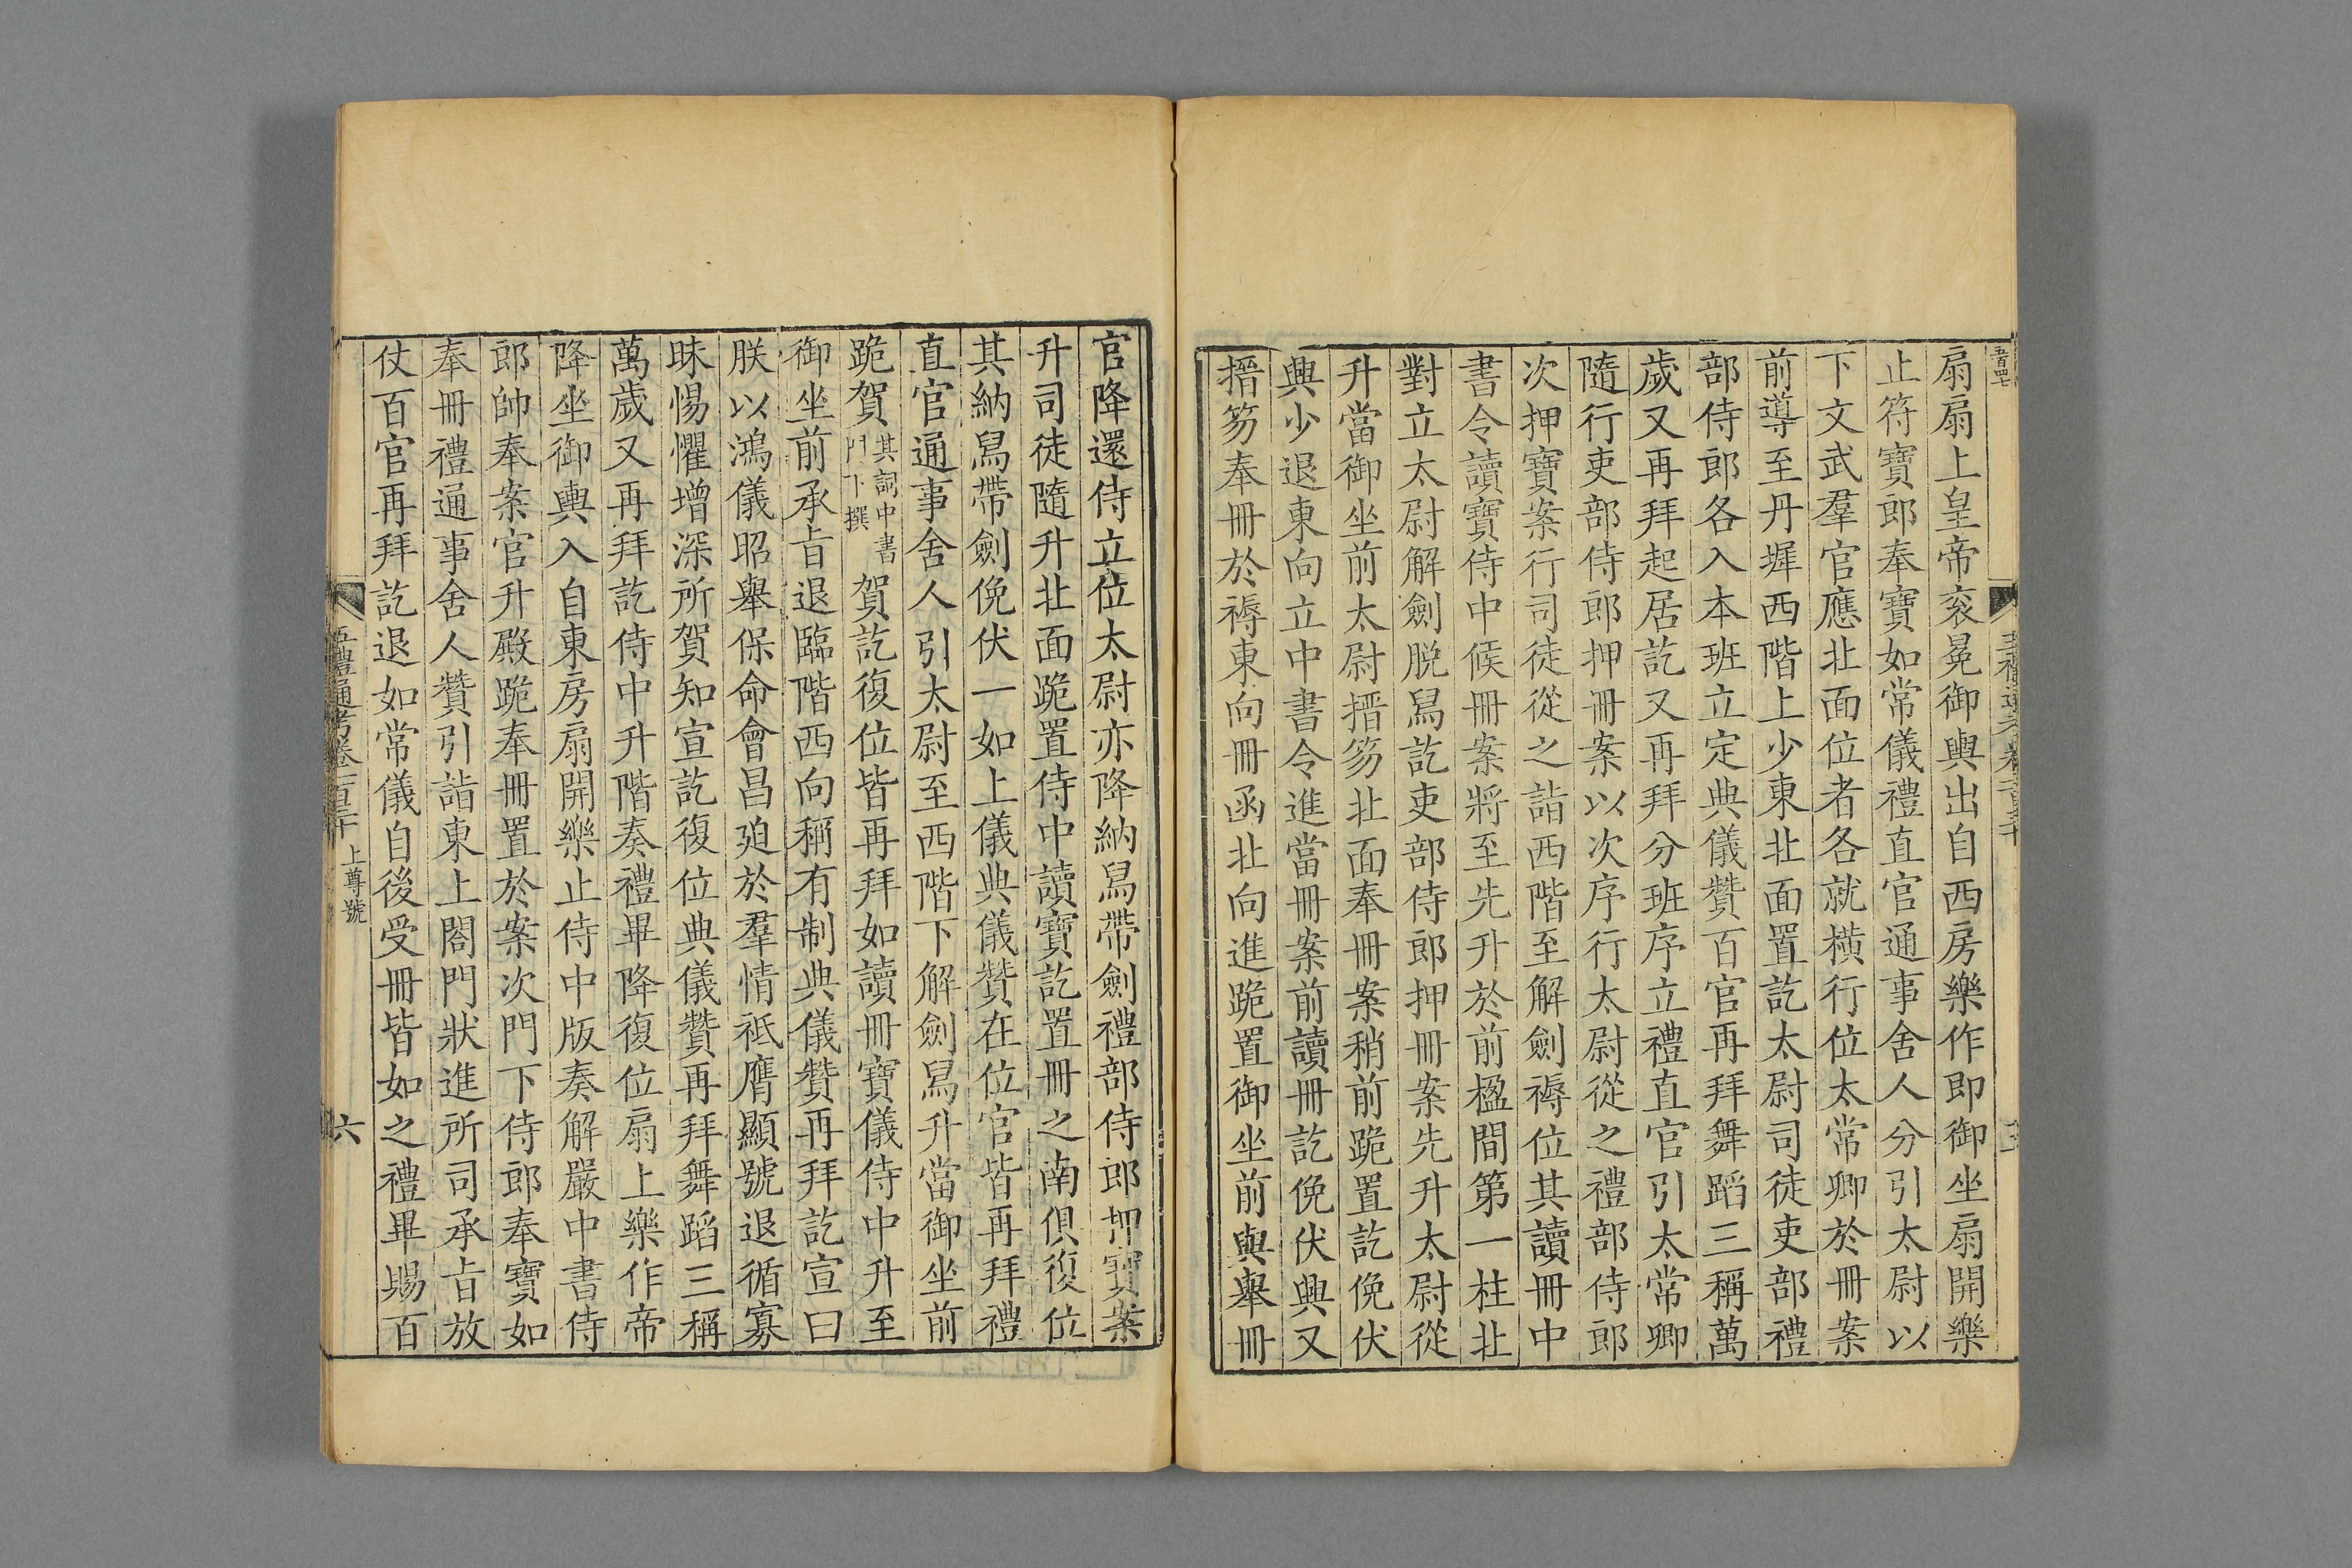 扇扇上皇帝衮冕御輿出自西房樂作即御坐扇開樂
止符寶郎奉寶如常儀禮直官通事舍人分引太尉以
下文武羣官應北面位者各就橫行位太常卿於冊案
前導至丹墀西階上少東北面置訖太尉司徒吏部禮
部侍郎各入本班立定典儀贊百官再拜舞蹈三稱萬
歲又再拜起居訖又再拜分班序立禮直官引太常卿
隨行吏部侍郎押冊案以次序行太尉從之禮部侍郎
次押寶案行司徒從之詣西階至解劍褥位其讀冊中
書令讀寶侍中候冊案將至先升於前楹間第一柱北
對立太尉解劍脱舄訖吏部侍郎押冊案先升太尉從
升當御坐前太尉搢笏北面奉冊案稍前跪置訖俛伏
興少退東向立中書令進當冊案前讀冊訖俛伏興又
搢笏奉冊於褥東向冊函北向進跪置御坐前與舉冊
官降還侍立位太尉亦降納舄帶劍禮部侍郎押寶案
升司徒隨升北面跪置侍中讀寶訖置冊之南俱復位
其納舄帶劍俛伏一如上儀典儀贊在位官皆再拜禮
直官通事舍人引太尉至西階下解劍舄升當御坐前
跪賀其詞中書門下撰賀訖復位皆再拜如讀冊寶儀侍中升至
御坐前承旨退臨階西向稱有制典儀贊再拜訖宣曰
朕以鴻儀昭舉保命會昌廹於羣情祗膺顯號退循寡
昧惕懼增深所賀知宣訖復位典儀贊再拜舞蹈三稱
萬歲又再拜訖侍中升階奏禮畢降復位扇上樂作帝
降坐御輿入自東房扇開樂止侍中版奏解嚴中書侍
郎帥奉案官升殿跪奉冊置於案次門下侍郎奉寶如
奉冊禮通事舍人贊引詣東上閤門狀進所司承旨放
仗百官再拜訖退如常儀自後受冊皆如之禮畢賜百
五禮通考卷一百三十 上尊號
六